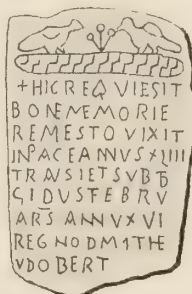 + HIC REQVIESIT
BONE MEMORIE
REMESTO VIXIT
IN PACE ANNVS XLIIII
TRANSIET SVB Đ
GIDVS FEBRV
ARS ANNV XVI
REGNO DM1 THE
VDOBERT